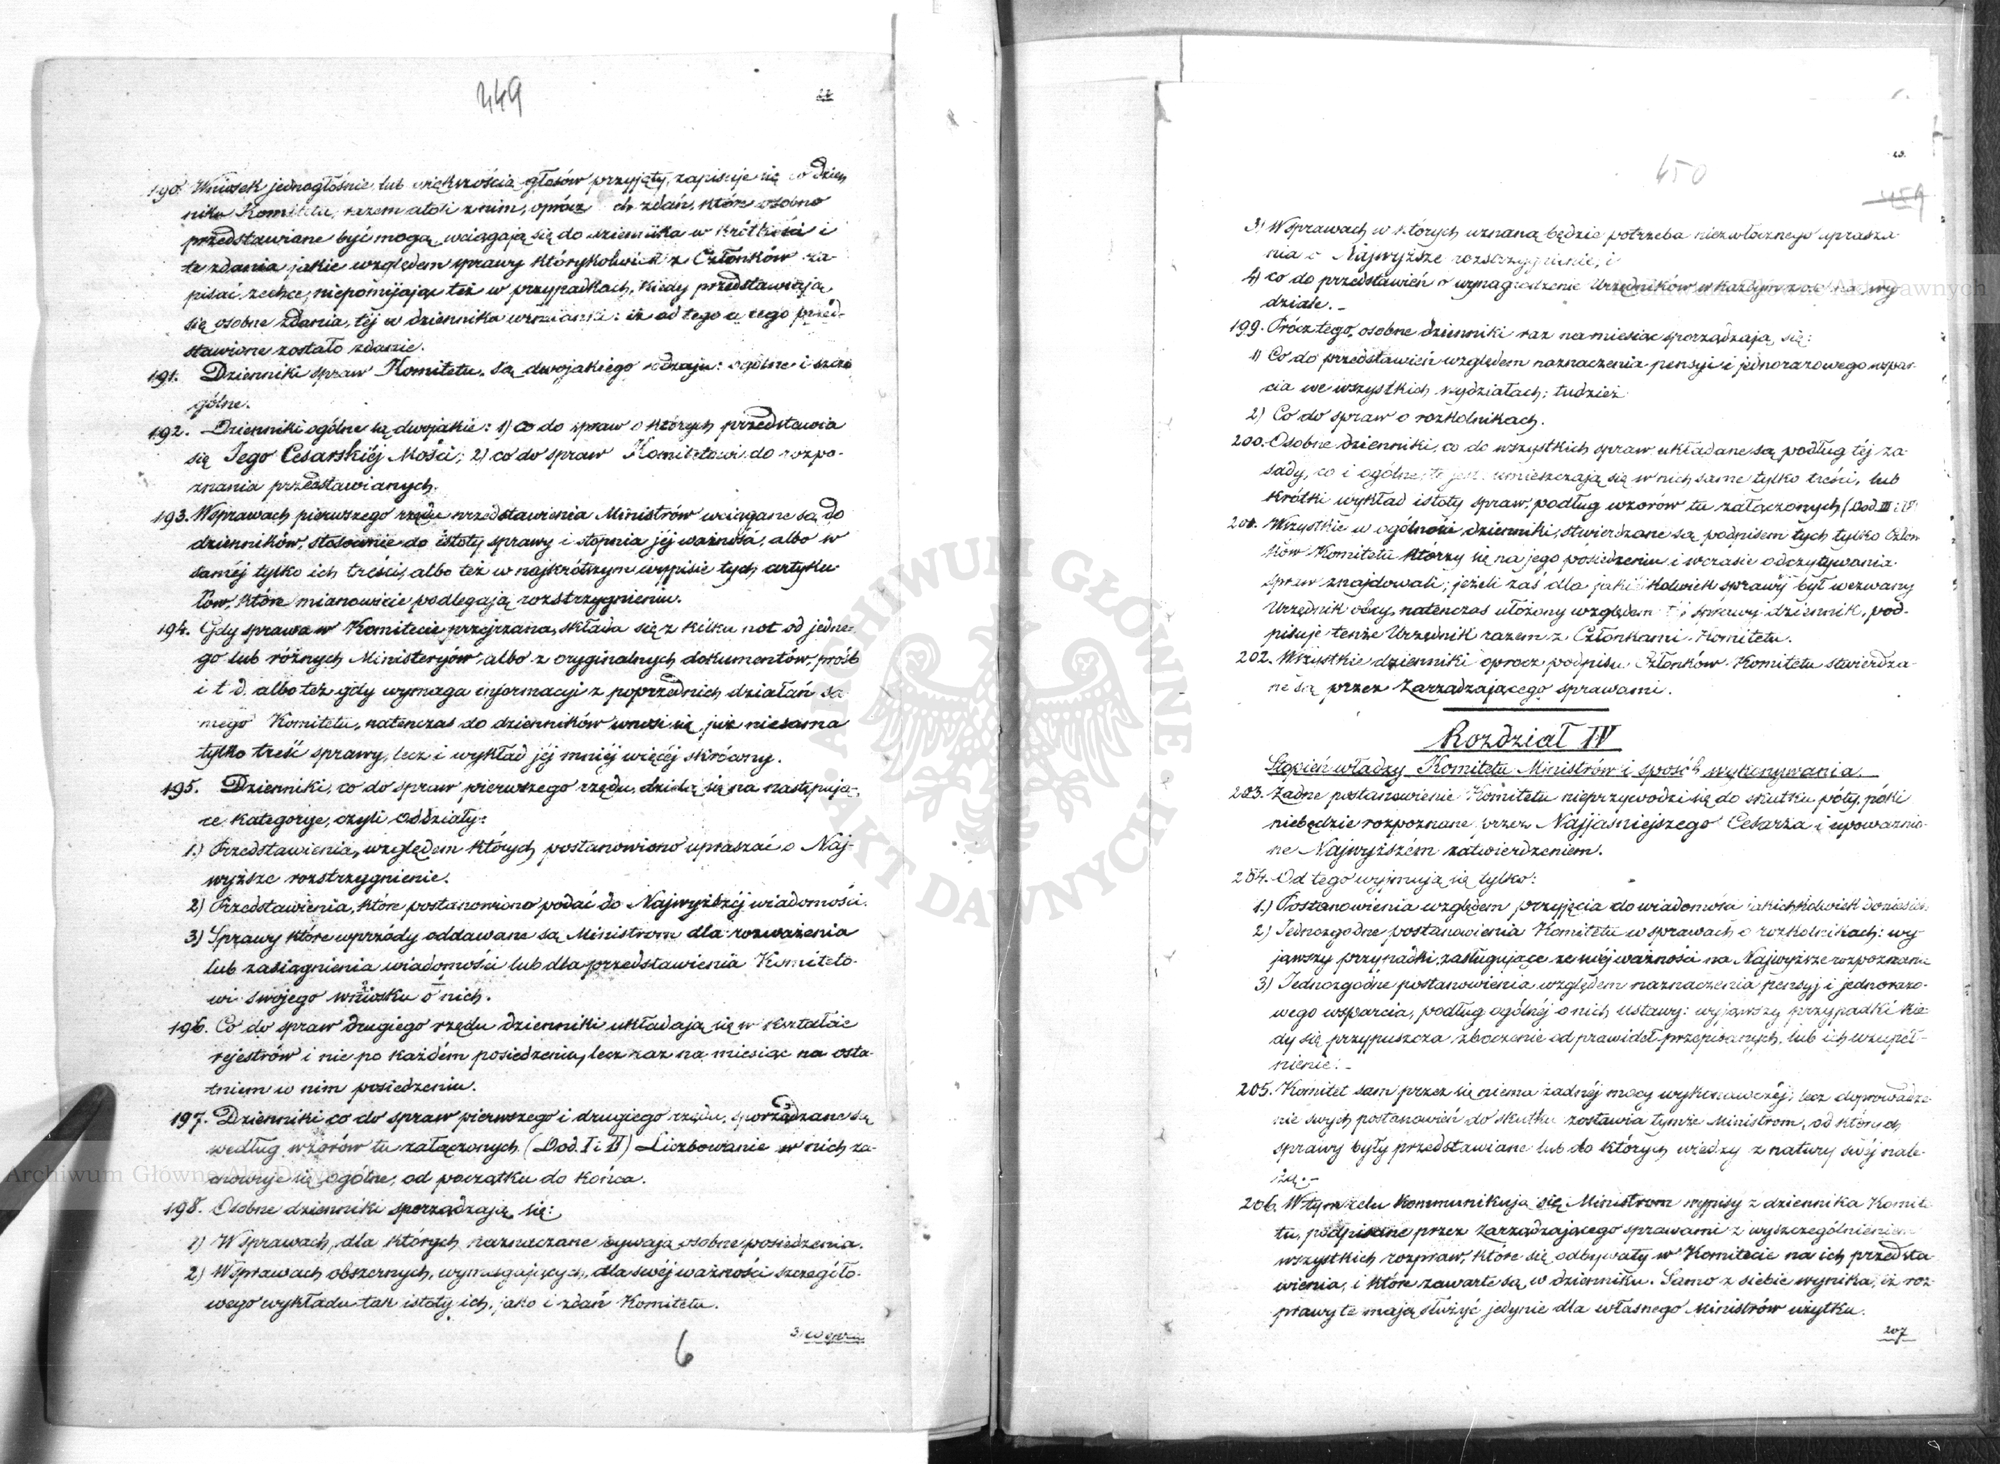 449
190. Wniosek jednogłośnie, lub większością głosów przyjęty, zapisuje się w dzien
niku Komitetu, razem atoli z nim, oprócz ch zdań, które osobno
przedstawiane być mogą, wciągają się do dziennika w krótkości i
te zdania jakie względem sprawy którykolwiek z Członków za-
pisać zechce, niepomijając też w przypadkach, kiedy przedstawiają
się osobne zdania, téj w dzienniku wzmianki: iż od tego a tego przed-
stawione zostało zdanie.
191. Dzienniki spraw Komitetu, są dwojakiego rodzaju: ogólne i szcze
gólne.
192. Dzienniki ogólne są dwojakie: 1) co do spraw o których przedstawia
się Jego Cesarskiéj Mości; 2) co do spraw Komitetowi do rozpo-
znania przedstawianych.
193. W sprawach pierwszego rzędu przedstawienia Ministrów wciągane są do
dzienników, stosownie do istoty sprawy i stopnia jej ważności, albo w
saméj tylko ich treści, albo też w najkrótszym wypisie tych artyku
łów, które mianowicie podlegają rozstrzygnieniu.
194. Gdy sprawa w Komitecie przejrzana, składa się z kilku not od jedne-
go lub różnych Ministeryów, albo z oryginalnych dokumentów, próśb
i t d. albo też gdy wymaga informacyi z poprzednich działań sa
mego Komitetu, natenczas do dzienników wnosi się, już niesama
tylko treść sprawy, lecz i wykład jéj mniéj więcéj skrócony.
195. Dzienniki, co do spraw pierwszego rzędu, dzielą się na następują-
ce kategorye, czyli oddziały:
1.) Przedstawienia, względem których postanowiono upraszać o Naj-
wyższe rozstrzygnienie.
2) Przedstawienia, które postanowiono podać do Najwyższéj wiadomości.
3) Sprawy które wprzódy oddawane są Ministrom dla rozważenia
lub zasiągnienia wiadomości lub dla przedstawienia Komiteto-
wi swojego wniosku o nich.
196. Co do spraw drugiego rzędu dzienniki układają się w kształcie
rejestrów i nie po każdém posiedzeniu, lecz raz na miesiąc na osta-
tniem w nim posiedzeniu.
197. Dzienniki co do spraw pierwszego i drugiego rzędu, sporządzane są
według wzorów tu załączonych (Dod. I i II) Liczbowanie w nich za-
chowuje się ogólne, od początku do końca.
198. Osobne dzienniki sporządzają się:
1) W sprawach, dla których naznaczane bywają osobne posiedzenia.
2) W sprawach obszernych, wymagających, dla swéj ważności szczegóło-
wego wykładu tak istoty ich, jako i zdań Komitetu.
6
450
459
3) W sprawach w których uznaną będzie potrzeba niezwłocznego uprasza
nia o Najwyższe rozstrzygnienie, i
4) co do przedstawień o wynagrodzenie Urzędników w każdym wy
dziale.
199. Prócz tego, osobne dzienniki raz na miesiąc sporządzają się:
1) Co do przedstawień względem naznaczenia pensyi i jednorazowego wspar-
cia we wszystkich wydziałach; tudzież
2) Co do spraw o rozkolnikach.
200. Osobne dzienniki, co do wszystkich spraw układane są podług téj za
sady, co i ogólne, to jest: umieszczają się w nich same tylko treści, lub
krótki wykład istoty spraw, podług wzorów tu załączonych (Dod III i IV
201. Wszystkie w ogólności dzienniki, stwierdzane są podpisem tych tylko Człon
ków Komitetu którzy się na jego posiedzeniu i w czasie odczytywania
spraw znajdowali; jeżeli zaś dla jakiéjkolwiek sprawy był wezwany
Urzędnik obcy, natenczas ułożony względem téj sprawy dziennik, pod-
pisuje tenże Urzędnik razem z Członkami Komitetu.
202. Wszystkie dzienniki oprócz podpisu Członków Komitetu stwierdza-
ne są przez Zarządzającego sprawami.
Rozdział IV
Stopień władzy Komitetu Ministrów i sposób wykonywania.
203. Żadne postanowienie Komitetu nieprzywodzi się do skutku póty, póki
niebędzie rozpoznane przez Najjaśniejszego Cesarza i upoważnio-
ne Najwyższem zatwierdzeniem.
204. Od tego wyjmują się tylko:
1.) Postanowienia względem przyjęcia do wiadomości jakichkolwiek doniesień
2) Jednozgodne postanowienia Komitetu w sprawach o rozkolnikach: wy-
jąwszy przypadki, zasługujące ze swéj ważności na Najwyższe rozpoznanie
3) Jednozgodne postanowienia względem naznaczenia pensyj i jednorazo-
wego wsparcia, podług ogólnéj o nich ustawy: wyjąwszy przypadki kie
dy się przypuszcza zboczenie od prawideł przepisanych, lub ich uzupeł-
nienie.
205. Komitet sam przez się niema żadnéj mocy wykonawczéj; lecz doprowadze
nie swych postanowień do skutku zostawia tymże Ministrom, od których
sprawy były przedstawiane lub do których wiedzy z natury swéj nale-
żą.
206. W tym celu kommunikują się Ministrom wypisy z dziennika Komite
tu, podpisane przez Zarządzającego sprawami z wyszczególnieniem
wszystkich rozpraw, które się odbywały w Komitecie na ich przedsta
wienia, i które zawarte są w dzienniku. Samo z siebie wynika, iż roz-
prawy te mają służyć jedynie dla własnego Ministrów użytku.
207
ARCHIWUM GŁÓWNE AKT DAWNYCH
Archiwum Główne Akt Dawnych